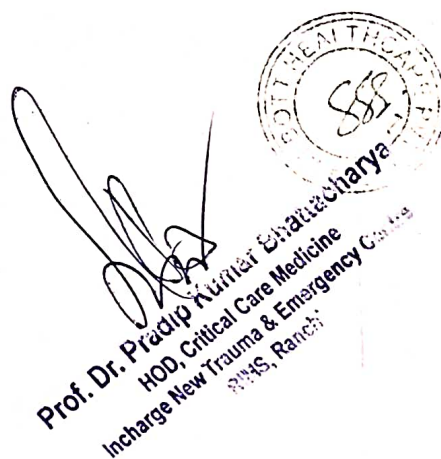 Prof. Dr. Pradip Kumar Bhattacharya
HOD, Critical Care Medicine
Incharge New Trauma & Emergency Centre
RIMS, Ranchi
HEALTHCARE